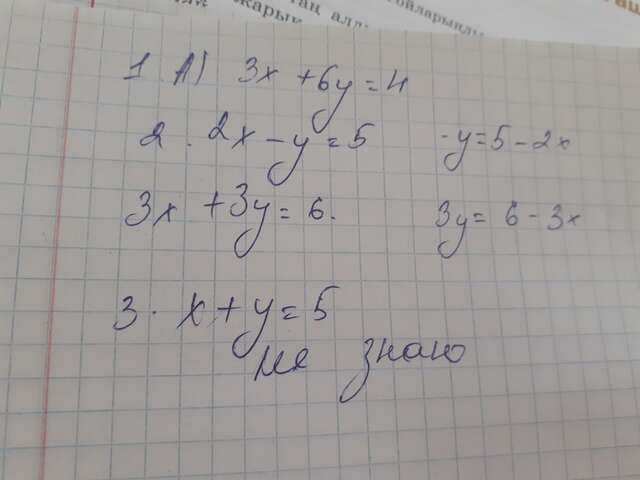 таң алды
жарық
ойларыңды
1 А) 3x + 6y = 4
2. 2x - y = 5 -y = 5 - 2x
3x + 3y = 6. 3y = 6 - 3x
3. x + y = 5
не знаю